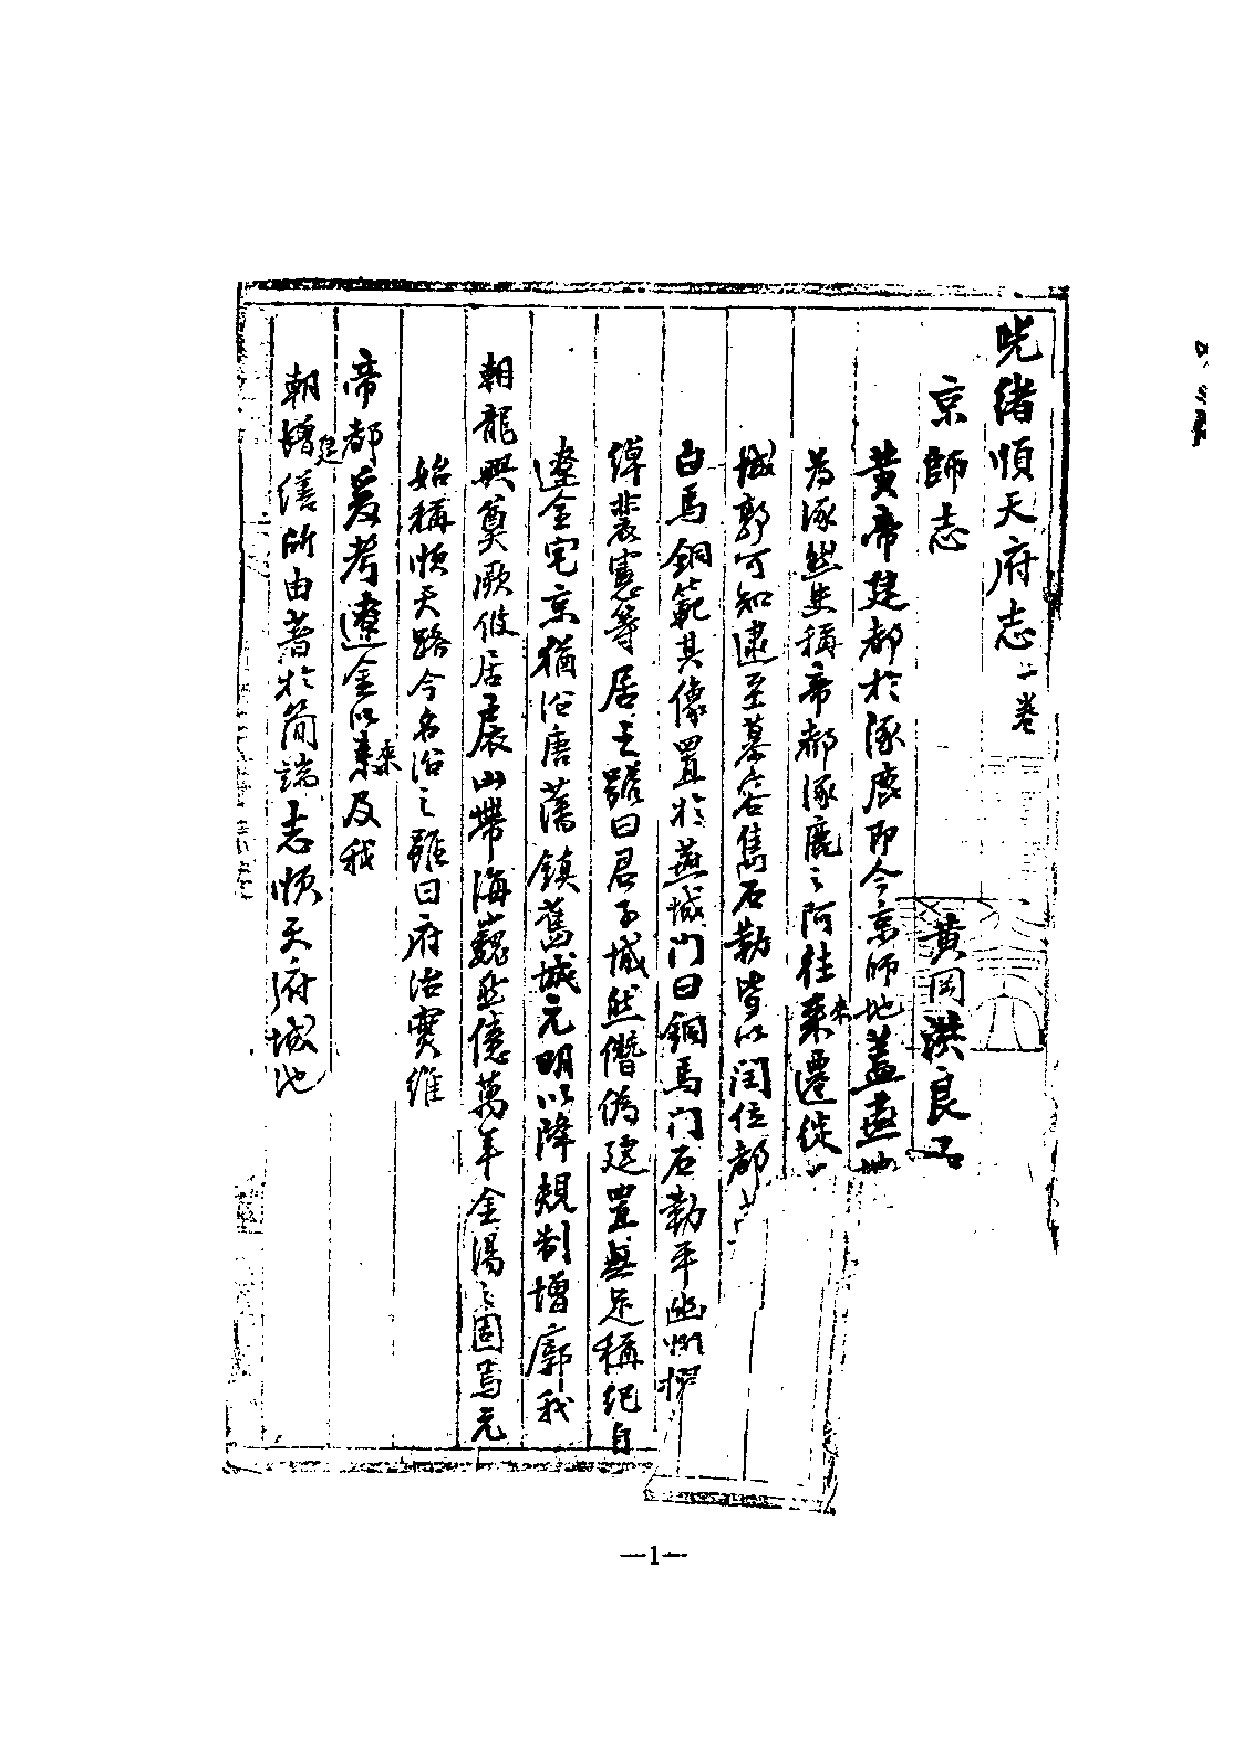 光緒順天府志 卷
京師志
黃岡洪良品
黃帝建都於涿鹿即今京師地蓋燕地
為涿然史稱帝都涿鹿之阿往來遷徙
城郭可知逮至慕容雋石勒皆以閏位都
白馬銅範其像置於燕城门曰銅馬门石勒平幽州
綽裴憲等居之號曰君子城然僭偽建置無足稱紀自
遼金宅京猶沿唐藩鎮舊城元明以降規制增廓我
朝龍興奠厥攸居扆山帶海巍然億萬年金湯之固焉元
始稱順天路今名沿之雖曰府治實維
帝都爰考遼金以來及我
朝增繕所由著於簡端志順天府城池
—1—